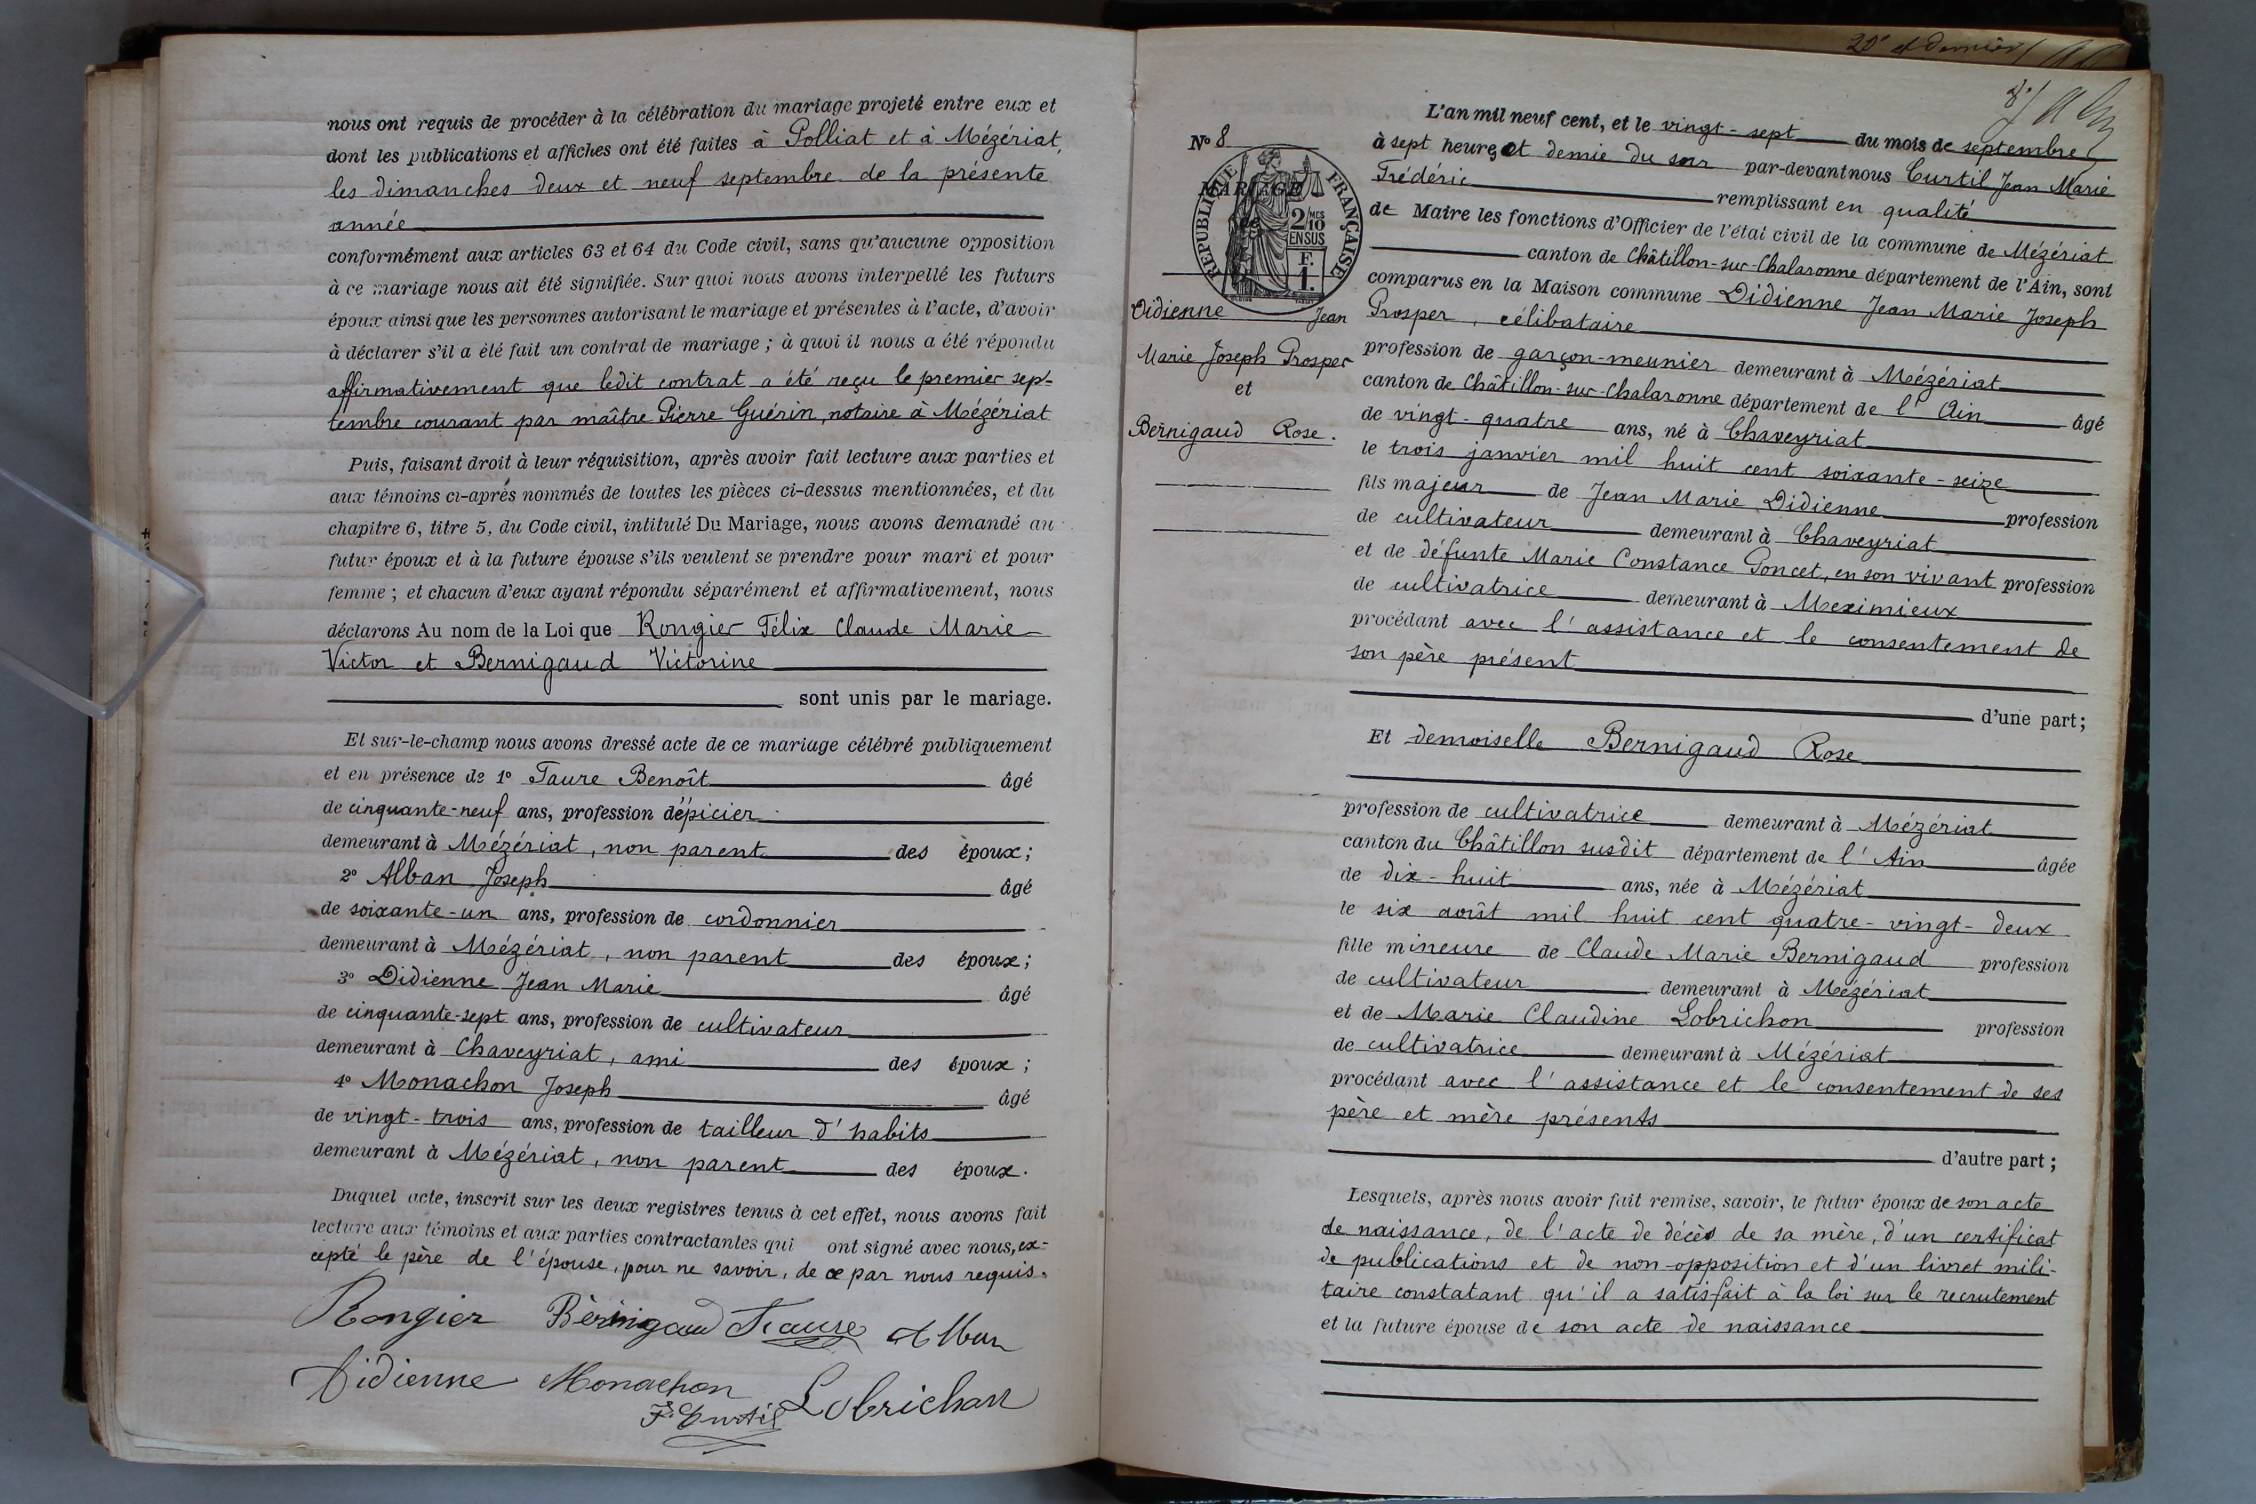 nous ont requis de procéder à la célébration du mariage projeté entre eux et
dont les publications et affiches ont été faites à Polliat et à Mézériat,
les dimanches deux et neuf septembre de la présente
année
conformément aux articles 63 et 64 du Code civil, sans qu'aucune opposition
à ce mariage nous ait été signifiée. Sur quoi nous avons interpellé les futurs
époux ainsi que les personnes autorisant le mariage et présentes à l'acte, d'avoir
à déclarer s'il a été fait un contrat de mariage ; à quoi il nous a été répondu
affirmativement que ledit contrat a été reçu le premier sep-
tembre courant par maître Pierre Guérin, notaire à Mézériat
Puis, faisant droit à leur réquisition, après avoir fait lecture aux parties et
aux témoins ci-après nommés de toutes les pièces ci-dessus mentionnées, et du
chapitre 6, titre 5, du Code civil, intitulé Du Mariage, nous avons demandé au
futur époux et à la future épouse s'ils veulent se prendre pour mari et pour
femme ; et chacun d'eux ayant répondu séparément et affirmativement, nous
déclarons Au nom de la Loi que Rongier Félix Claude Marie
Victor et Bernigaud Victorine
sont unis par le mariage.
Et sur-le-champ nous avons dressé acte de ce mariage célébré publiquement
et en présence de 1° Faure Benoît âgé
de cinquante-neuf ans, profession d'épicier
demeurant à Mézériat, non parent des époux ;
2° Alban Joseph âgé
de soixante-un ans, profession de cordonnier
demeurant à Mézériat, non parent des époux ;
3° Didienne Jean Marie âgé
de cinquante-sept ans, profession de cultivateur
demeurant à Chaveyriat, ami des époux ;
4° Monachon Joseph âgé
de vingt-trois ans, profession de tailleur d'habits
demeurant à Mézériat, non parent des époux.
Duquel acte, inscrit sur les deux registres tenus à cet effet, nous avons fait
lecture aux témoins et aux parties contractantes qui ont signé avec nous, ex-
cepté le père de l'épouse, pour ne savoir, de ce par nous requis.
Rongier Bernigaud Faure Alban
Didienne Monachon
F. Curtil Lobrichon
20e et dernier
8e
N° 8
MARIAGE
de
RÉPUBLIQUE FRANÇAISE
2/10 MES
EN SUS
F.
1.
Didienne Jean
Marie Joseph Prosper
et
Bernigaud Rose.
L'an mil neuf cent, et le vingt-sept du mois de septembre
à sept heures et demie du soir par-devant nous Curtil Jean Marie
Frédéric remplissant en qualité
de Maire les fonctions d'Officier de l'état civil de la commune de Mézériat
canton de Châtillon-sur-Chalaronne département de l'Ain, sont
comparus en la Maison commune Didienne Jean Marie Joseph
Prosper, célibataire
profession de garçon-meunier demeurant à Mézériat
canton de Châtillon-sur-Chalaronne département de l'Ain âgé
de vingt-quatre ans, né à Chaveyriat
le trois janvier mil huit cent soixante-seize
fils majeur de Jean Marie Didienne profession
de cultivateur demeurant à Chaveyriat
et de défunte Marie Constance Poncet, en son vivant profession
de cultivatrice demeurant à Meximieux
procédant avec l'assistance et le consentement de
son père présent
d'une part ;
Et demoiselle Bernigaud Rose
profession de cultivatrice demeurant à Mézériat
canton du Châtillon susdit département de l'Ain âgée
de dix-huit ans, née à Mézériat
le six août mil huit cent quatre-vingt-deux
fille mineure de Claude Marie Bernigaud profession
de cultivateur demeurant à Mézériat
et de Marie Claudine Lobrichon profession
de cultivatrice demeurant à Mézériat
procédant avec l'assistance et le consentement de ses
père et mère présents
d'autre part ;
Lesquels, après nous avoir fait remise, savoir, le futur époux de son acte
de naissance, de l'acte de décès de sa mère, d'un certificat
de publications et de non-opposition et d'un livret mili-
taire constatant qu'il a satisfait à la loi sur le recrutement
et la future épouse de son acte de naissance